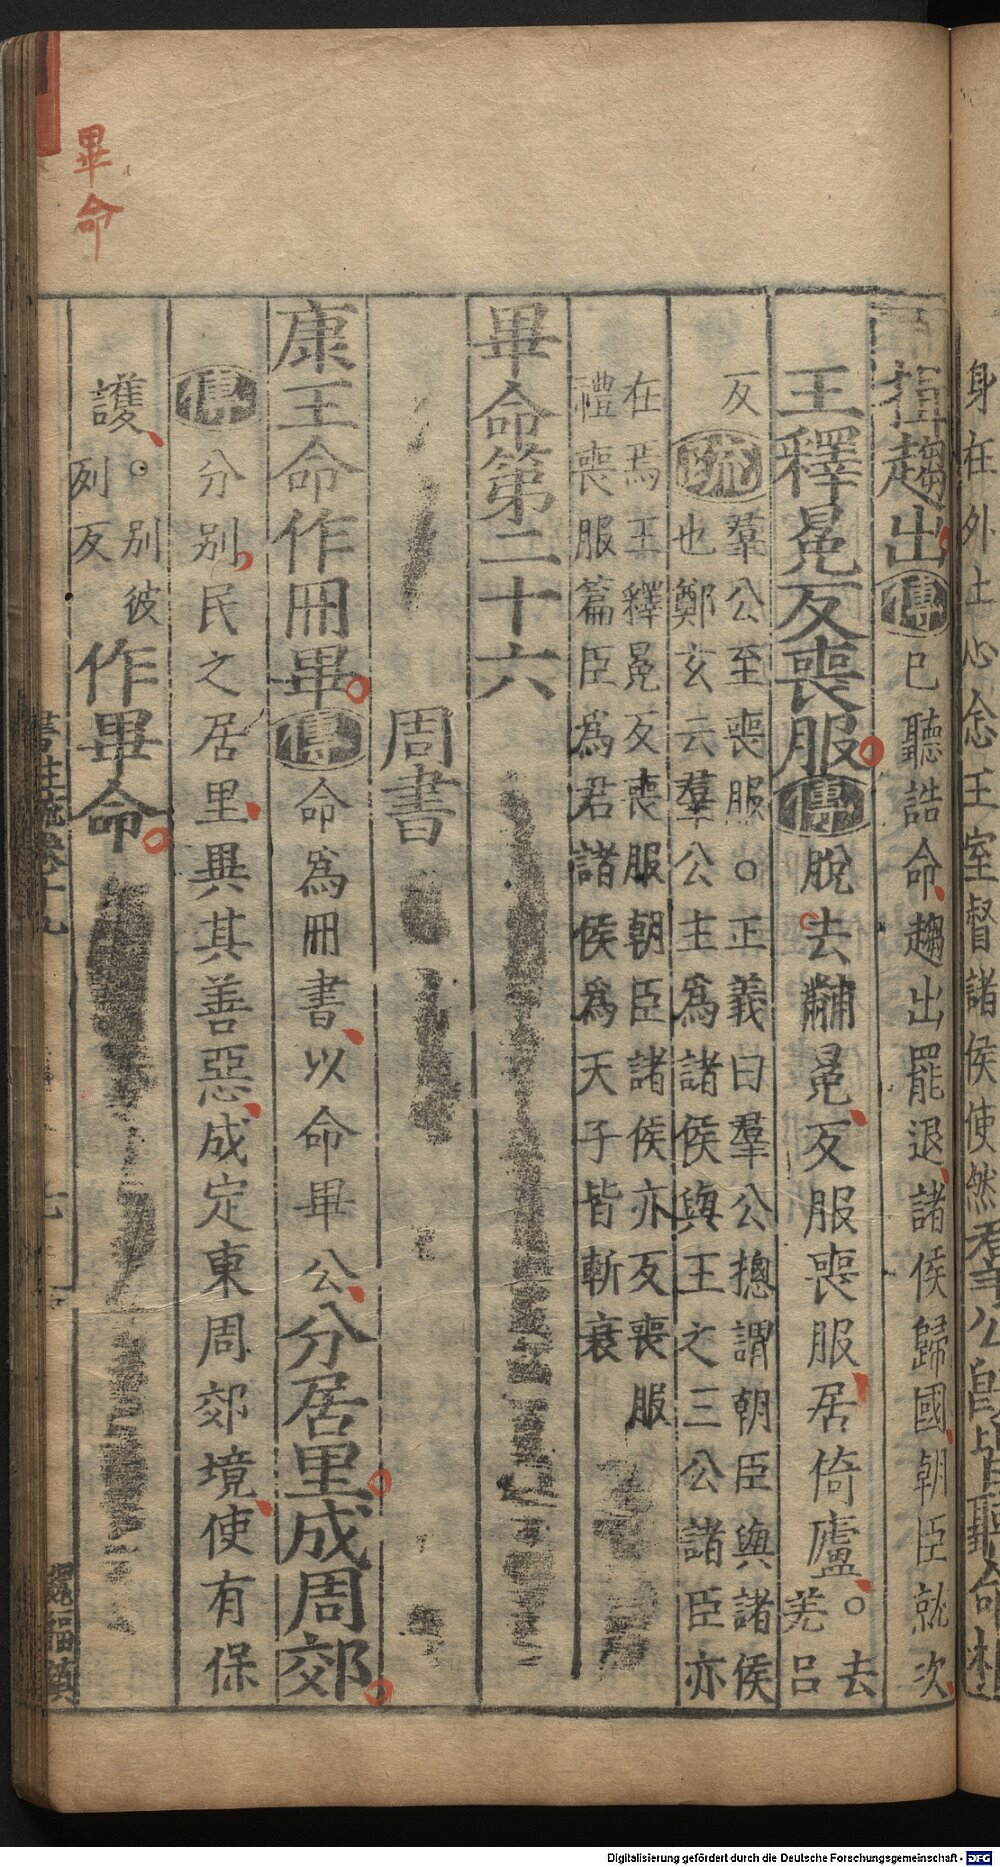 身在外土心念王室督諸侯使然羣公旣皆聽命相
揖趨出傳已聽誥命趨出罷退諸侯歸國朝臣就次
王釋冕反喪服傳脫去黼冕反服喪服居倚廬○去羌呂
反疏羣公至喪服○正義曰羣公揔謂朝臣與諸侯
也鄭玄云羣公主為諸侯與王之三公諸臣亦
在焉王釋冕反喪服朝臣諸侯亦反喪服
禮喪服篇臣為君諸侯為天子皆斬衰
畢命第二十六
周書
康王命作冊畢傳命為冊書以命畢公分居里成周郊
傳分別民之居里異其善惡成定東周郊境使有保
護○別彼列反作畢命
書註疏卷十九
七
畢命
Digitalisierung gefördert durch die Deutsche Forschungsgemeinschaft - DFG